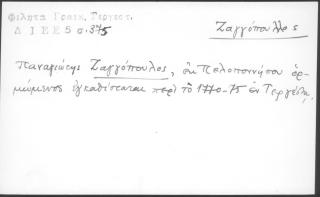 Φιλητα Γραικ. Τεργεστ.
Ζαγγόπουλος
ΔΙΕΕ 5 σ. 375
Παναγιώτης Ζαγγόπουλος, ἐκ Πελοποννήσου ὁρ-
μώμενος ἐγκαθίσταται περὶ τὸ 1770-75 ἐν Τεργέστῃ.